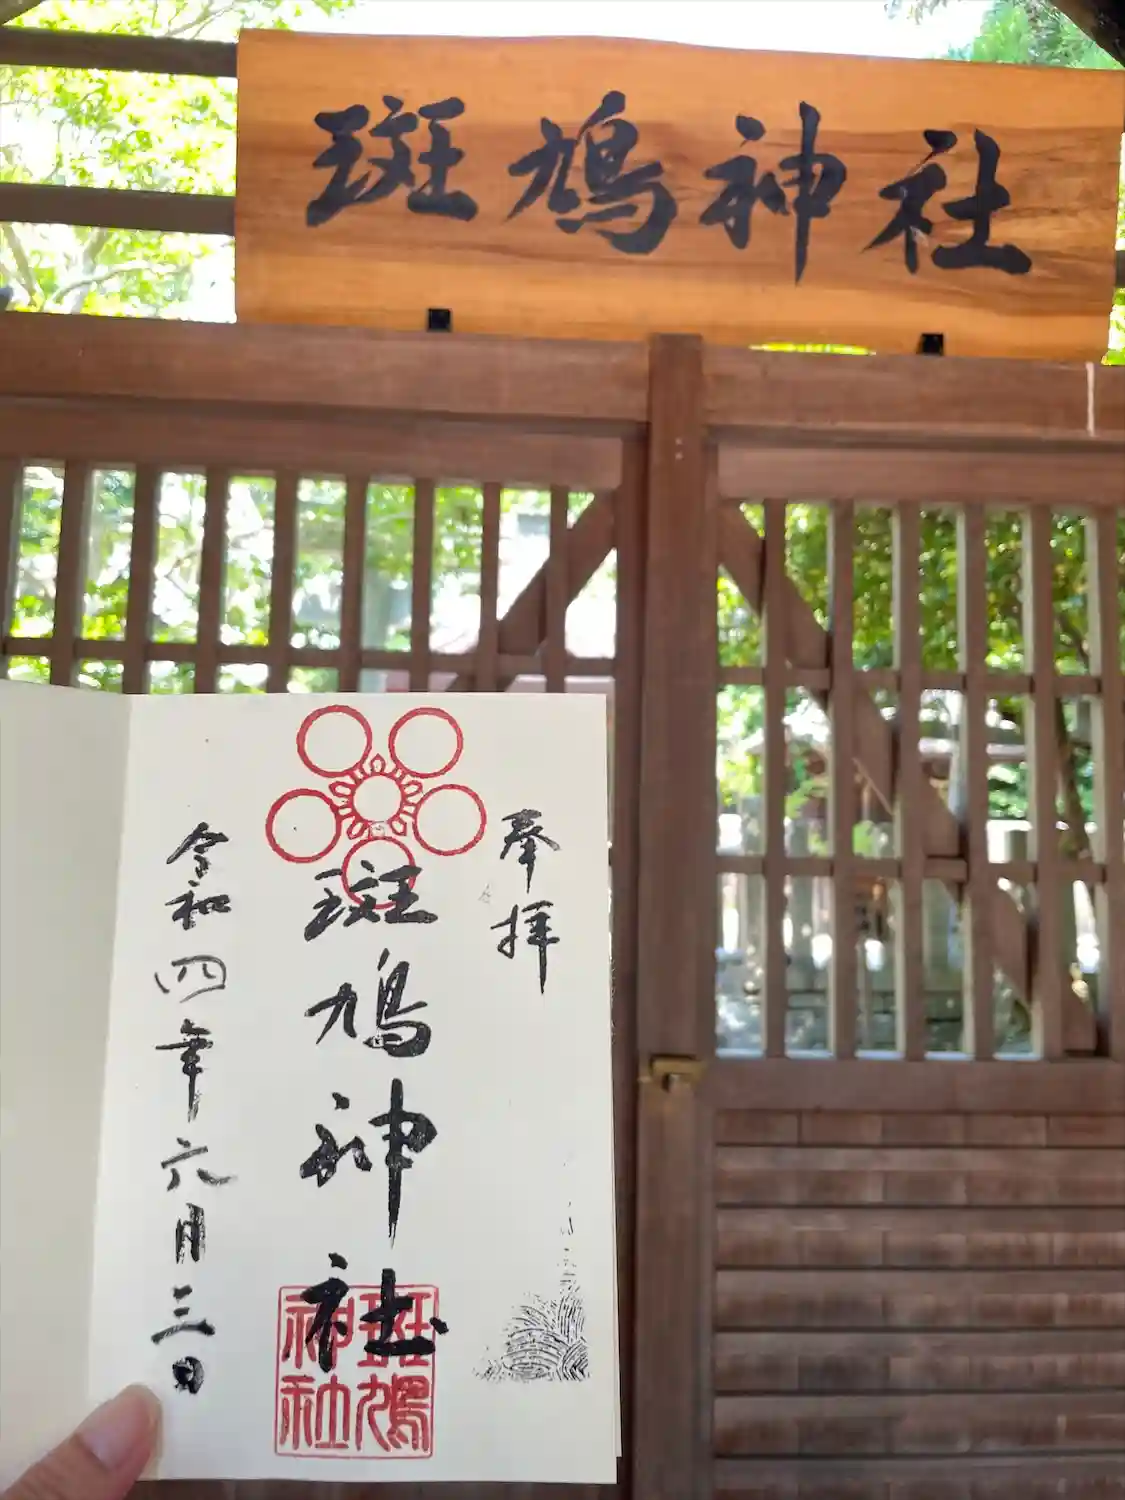 斑鳩神社
奉拝
斑鳩神社
令和四年六月三日
斑鳩
神社